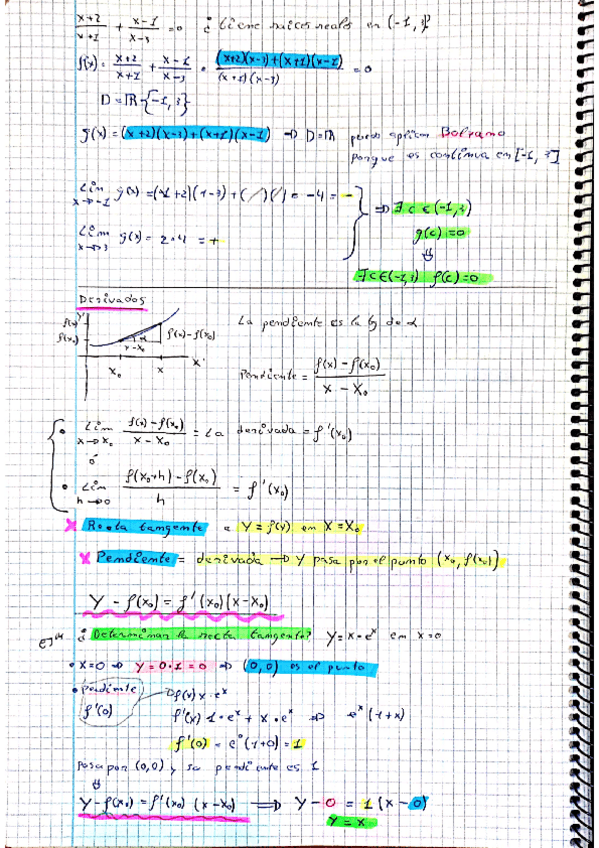 x+2/x+1 + x-1/x-3 = 0 ¿tiene raices reales en (-1,3)?
f(x) = x+2/x+1 + x-1/x-3 = (x+2)(x-3)+(x+1)(x-1)/(x+1)(x-3) = 0
D = ℝ-{-1,3}
g(x) = (x+2)(x-3)+(x+1)(x-1) ⇒ D=ℝ puedo aplicar Bolzano
porque es continua en [-1,3]
Lim x→-1 g(x) = (-1+2)(-1-3)+( )( ) = -4 = - ⇒ ∃ c ∈ (-1,3)
g(c)=0
⇓
Lim x→3 g(x) = 2·4 = +
∃ c∈(-1,3) f(c)=0
Derivadas
y
f(x)
f(x₀)
f(x)-f(x₀)
α
x-x₀
x
x₀
x
La pendiente es la tg de α
Pendiente = f(x)-f(x₀)/x-x₀
• Lim x→x₀ f(x)-f(x₀)/x-x₀ = La derivada = f'(x₀)
ó
• Lim h→0 f(x₀+h)-f(x₀)/h = f'(x₀)
x Recta tangente a y=f(x) en x=x₀
x Pendiente = derivada → y pasa por el punto (x₀, f(x₀))
y-f(x₀) = f'(x₀)(x-x₀)
¿Determinar la recta tangente? y=x·eˣ en x=0
• x=0 ⇒ y=0·1=0 ⇒ (0,0) es el punto
• pendiente → f(x) x·eˣ
f'(0)
f'(x) 1·eˣ + x·eˣ ⇒ eˣ(1+x)
f'(0) = e⁰(1+0) = 1
Pasa por (0,0) y su pendiente es 1
⇓
y-f(x₀) = f'(x₀)(x-x₀) ⇒ y-0 = 1(x-0)
y=x